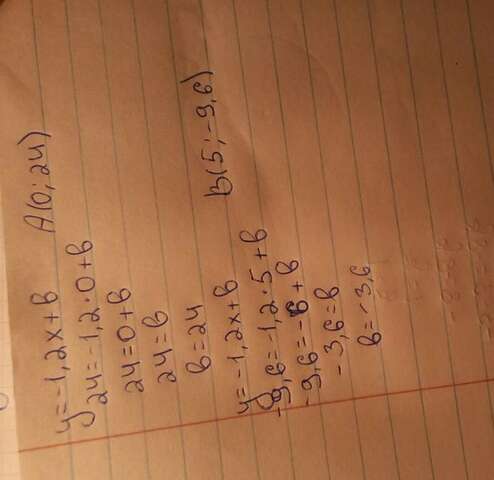 y=-1,2x+в А(0; 24)
24=-1,2·0+в
24=0+в
24=в
в=24
y=-1,2x+в В(5; -9,6)
-9,6=-1,2·5+в
-9,6=-6+в
-3,6=в
в=-3,6